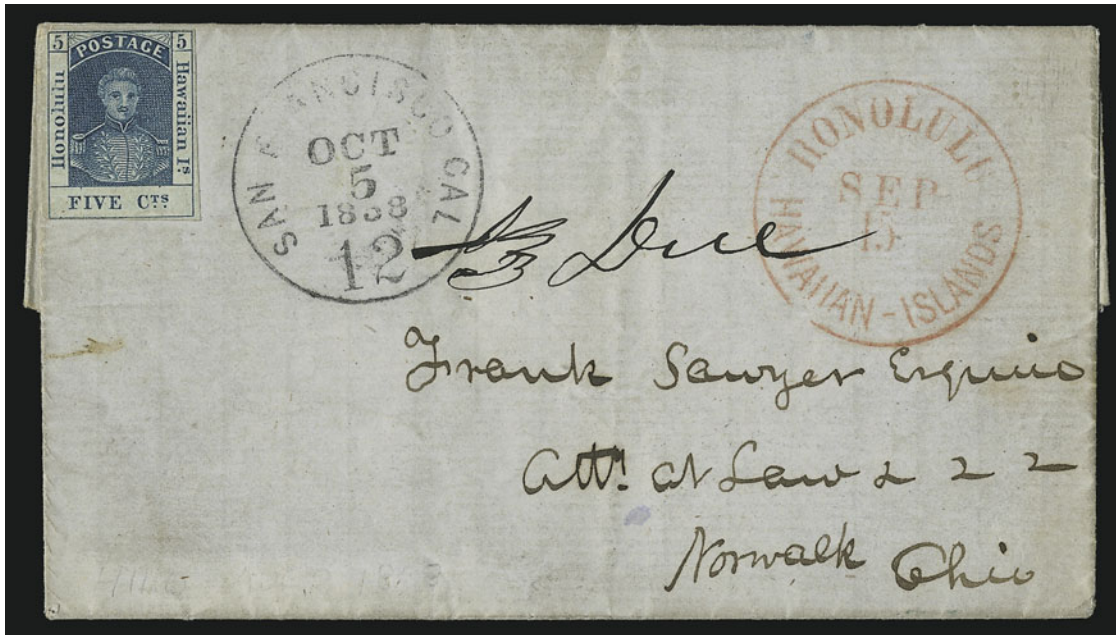 5 POSTAGE 5
Honolulu
Hawaiian Is.
FIVE CTS
SAN FRANCISCO CAL
OCT
5
1858
12
HONOLULU
SEP
15
HAWAIIAN-ISLANDS
Due
Frank Sawyer Esquire
Atty. at Law & 2 2
Norwalk Ohio